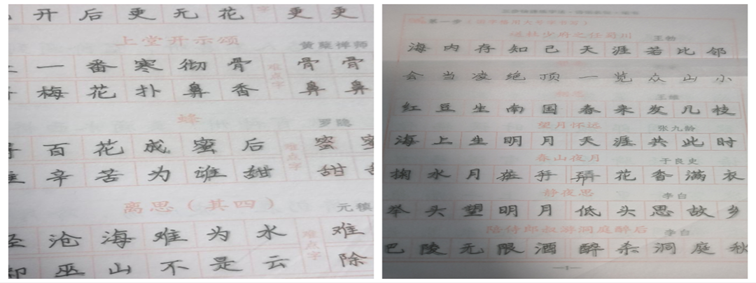 开后更无花 更更
上堂开示颂 黄檗禅师
一番寒彻骨 难点字 骨骨
梅花扑鼻香 鼻鼻
蜂 罗隐
百花成蜜后 难点字 蜜蜜
辛苦为谁甜 甜甜
离思(其四) 元稹
沧海难为水 难点字 难
巫山不是云 除
王勃
海内存知己 天涯若比邻
会当凌绝顶 一览众山小
王维
红豆生南国 春来发几枝
望月怀远 张九龄
海上生明月 天涯共此时
春山夜月 于良史
掬水月在手 弄花香满衣
静夜思 李白
举头望明月 低头思故乡
陪侍郎叔游洞庭醉后 李白
巴陵无限酒 醉杀洞庭秋